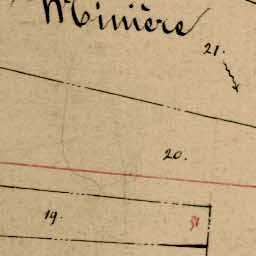 Minière
21.
20.
19.